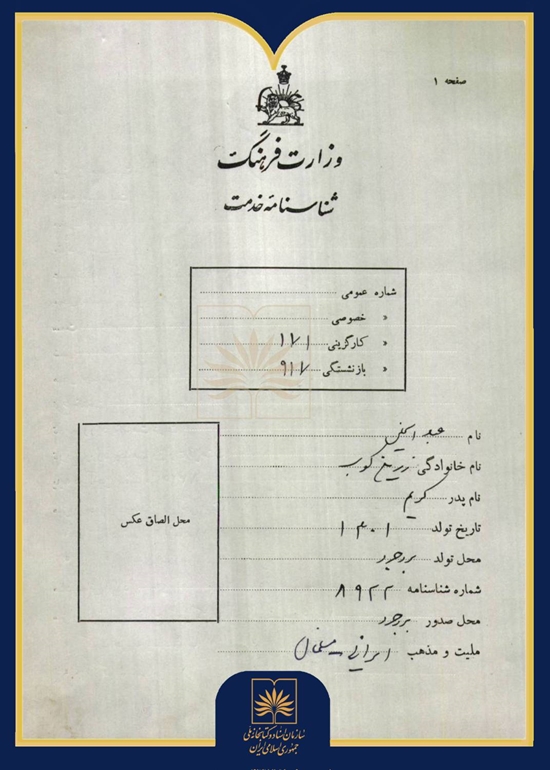 صفحه ۱
وزارت فرهنگ
شناسنامهٔ خدمت
شماره عمومی
« خصوصی
« کارگزینی ۱۷۱
« بازنشستگی ۹۱۷
نام عبدالحسین
نام خانوادگی زرین کوب
نام پدر کریم
تاریخ تولد ۱۳۰۱
محل تولد بروجرد
شماره شناسنامه ۸۹۲۲
محل صدور بروجرد
ملیت و مذهب ایرانی - مسلمان
محل الصاق عکس
سازمان اسناد و کتابخانه ملی
جمهوری اسلامی ایران